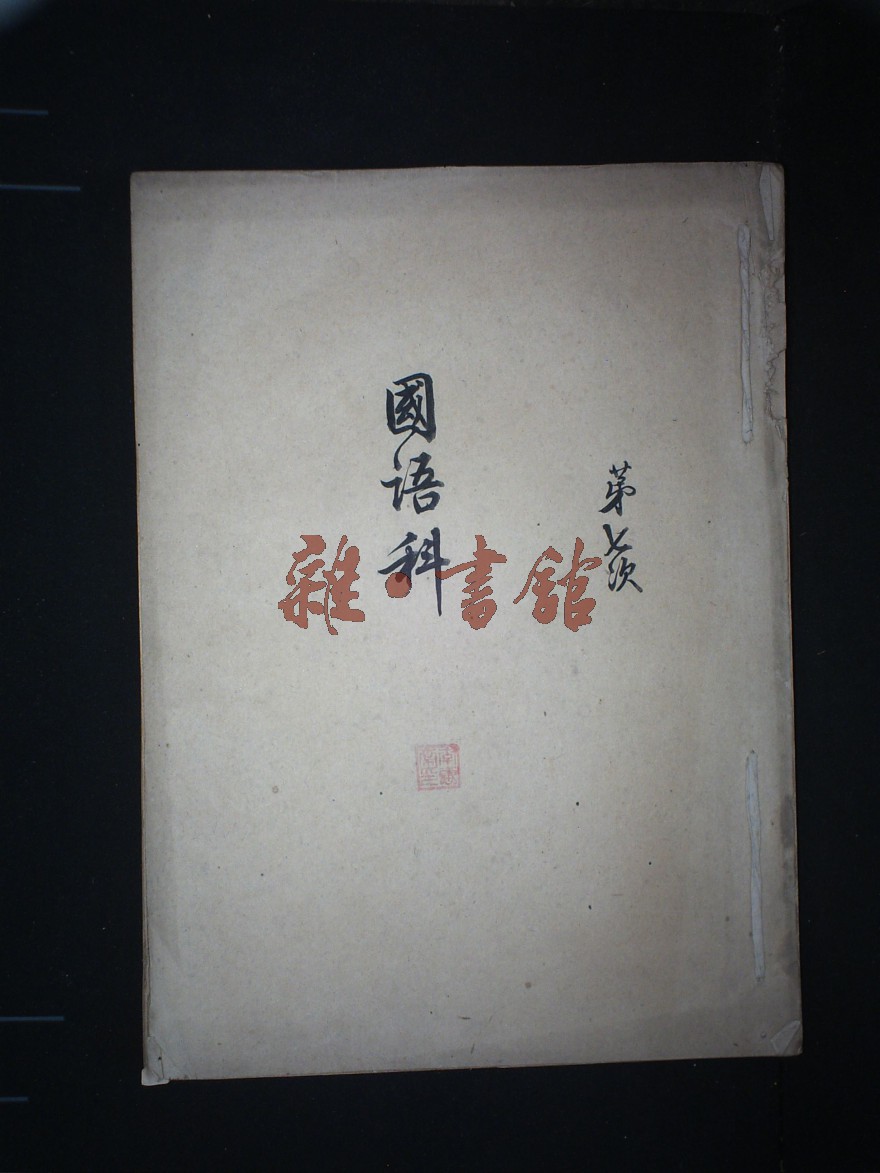 第七次
國語科
雜·書館